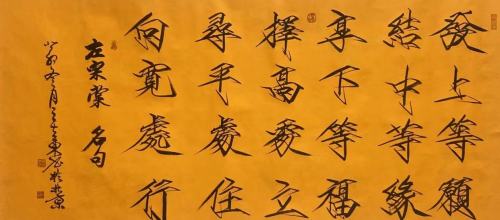 發上等願
結中等緣
享下等福
擇高處立
尋平處住
向寬處行
左宗棠 名句
癸卯冬月 於北京